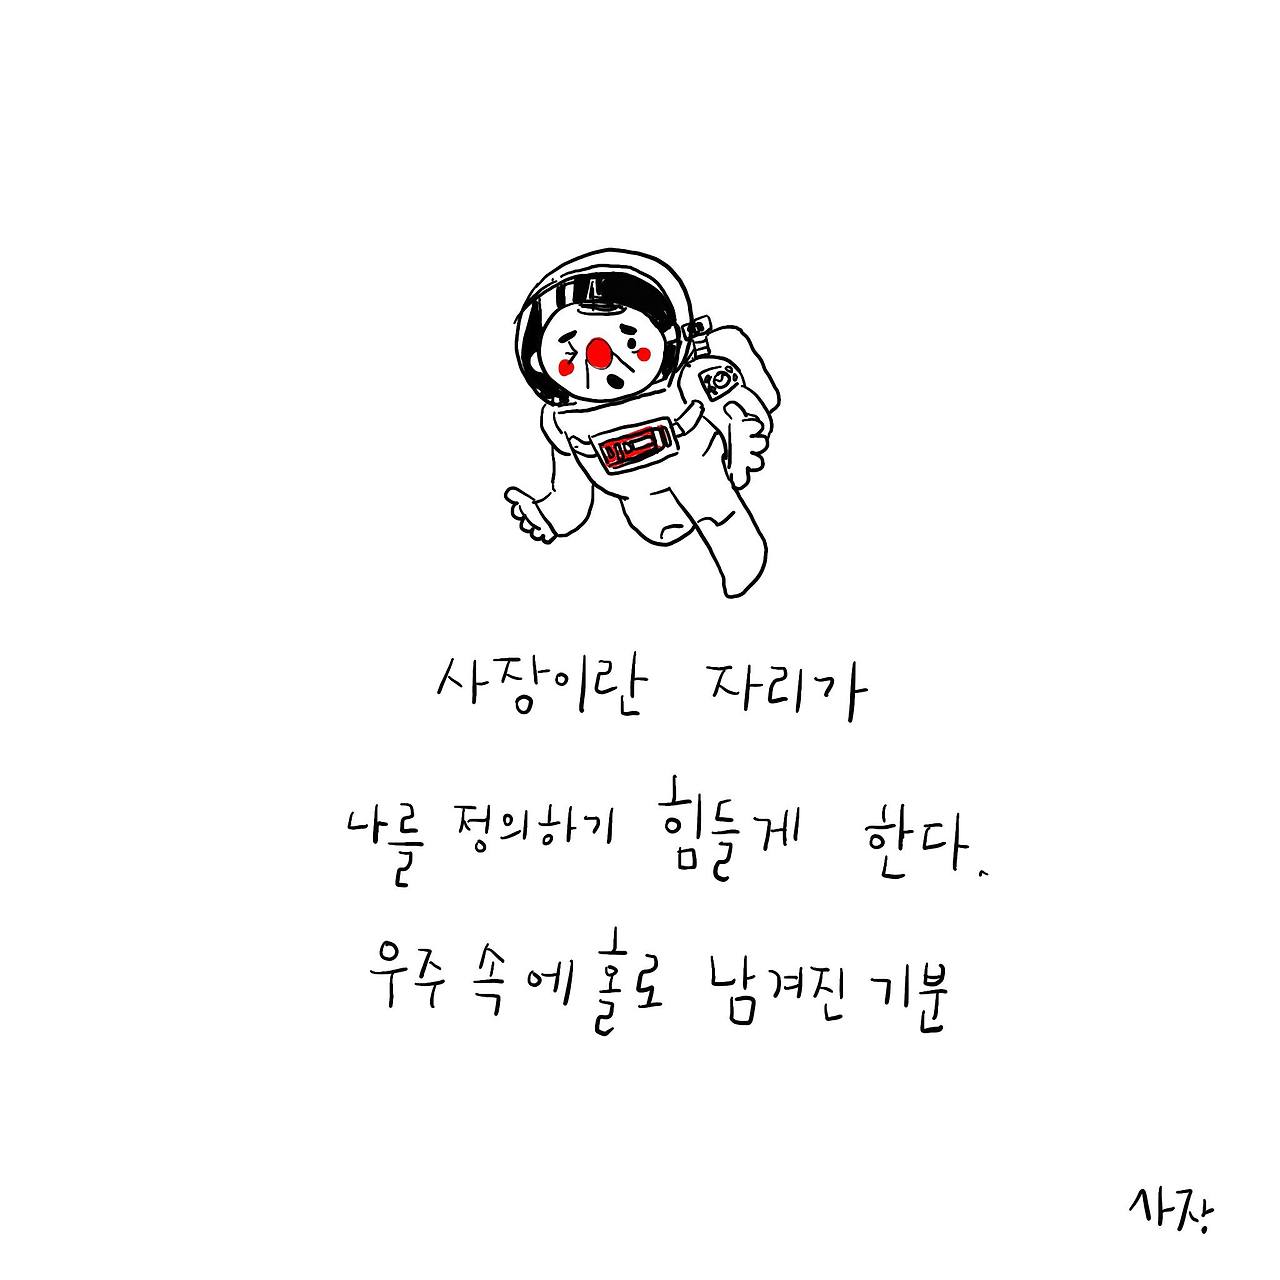 사장이란 자리가
나를 정의하기 힘들게 한다.
우주 속에 홀로 남겨진 기분
사장